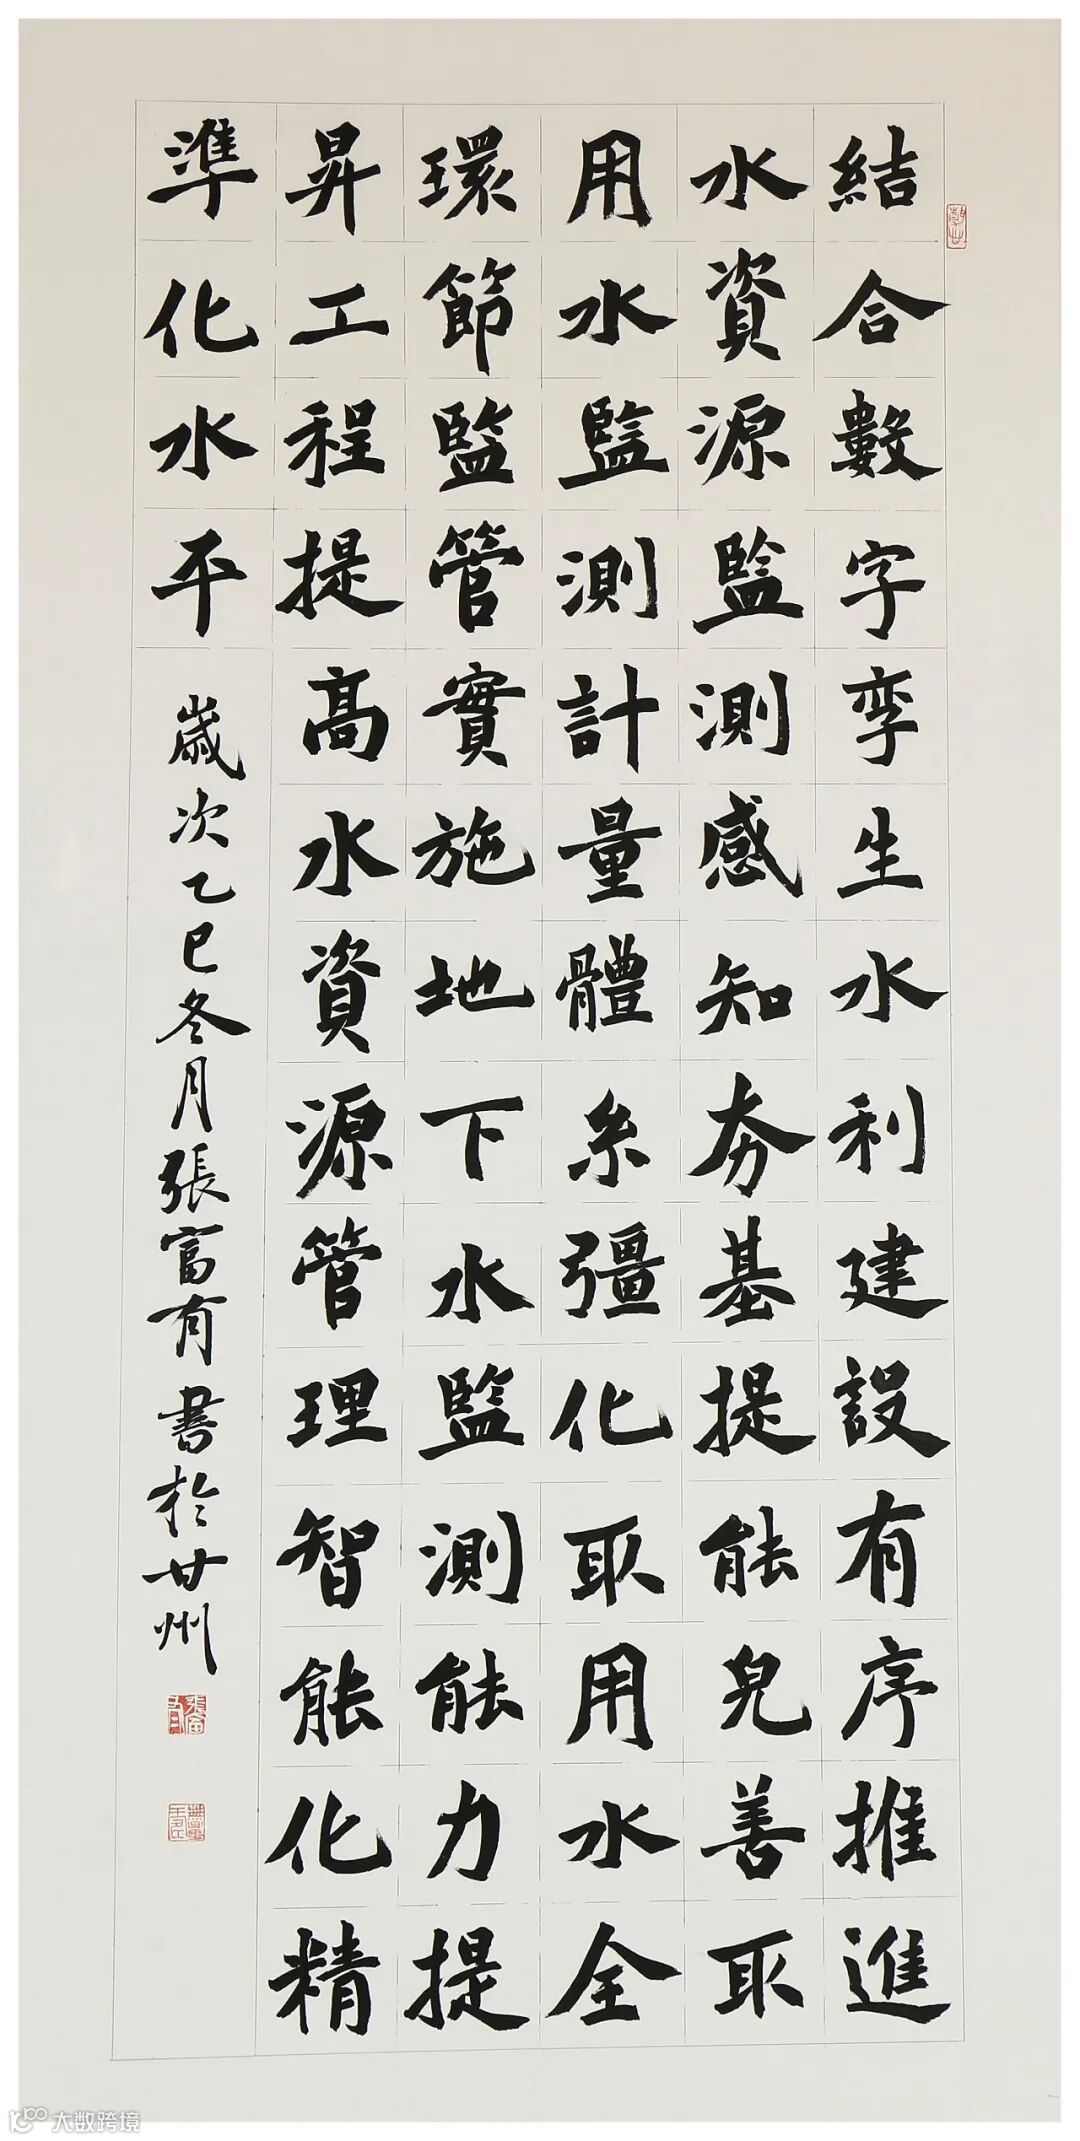 結合數字孪生水利建設有序推進
水資源監測感知夯基提能完善取
用水監測計量體系彊化取用水全
環節監管實施地下水監測能力提
昇工程提高水資源管理智能化精
準化水平
歲次乙巳冬月張富有書於甘州
張富有
大数跨境